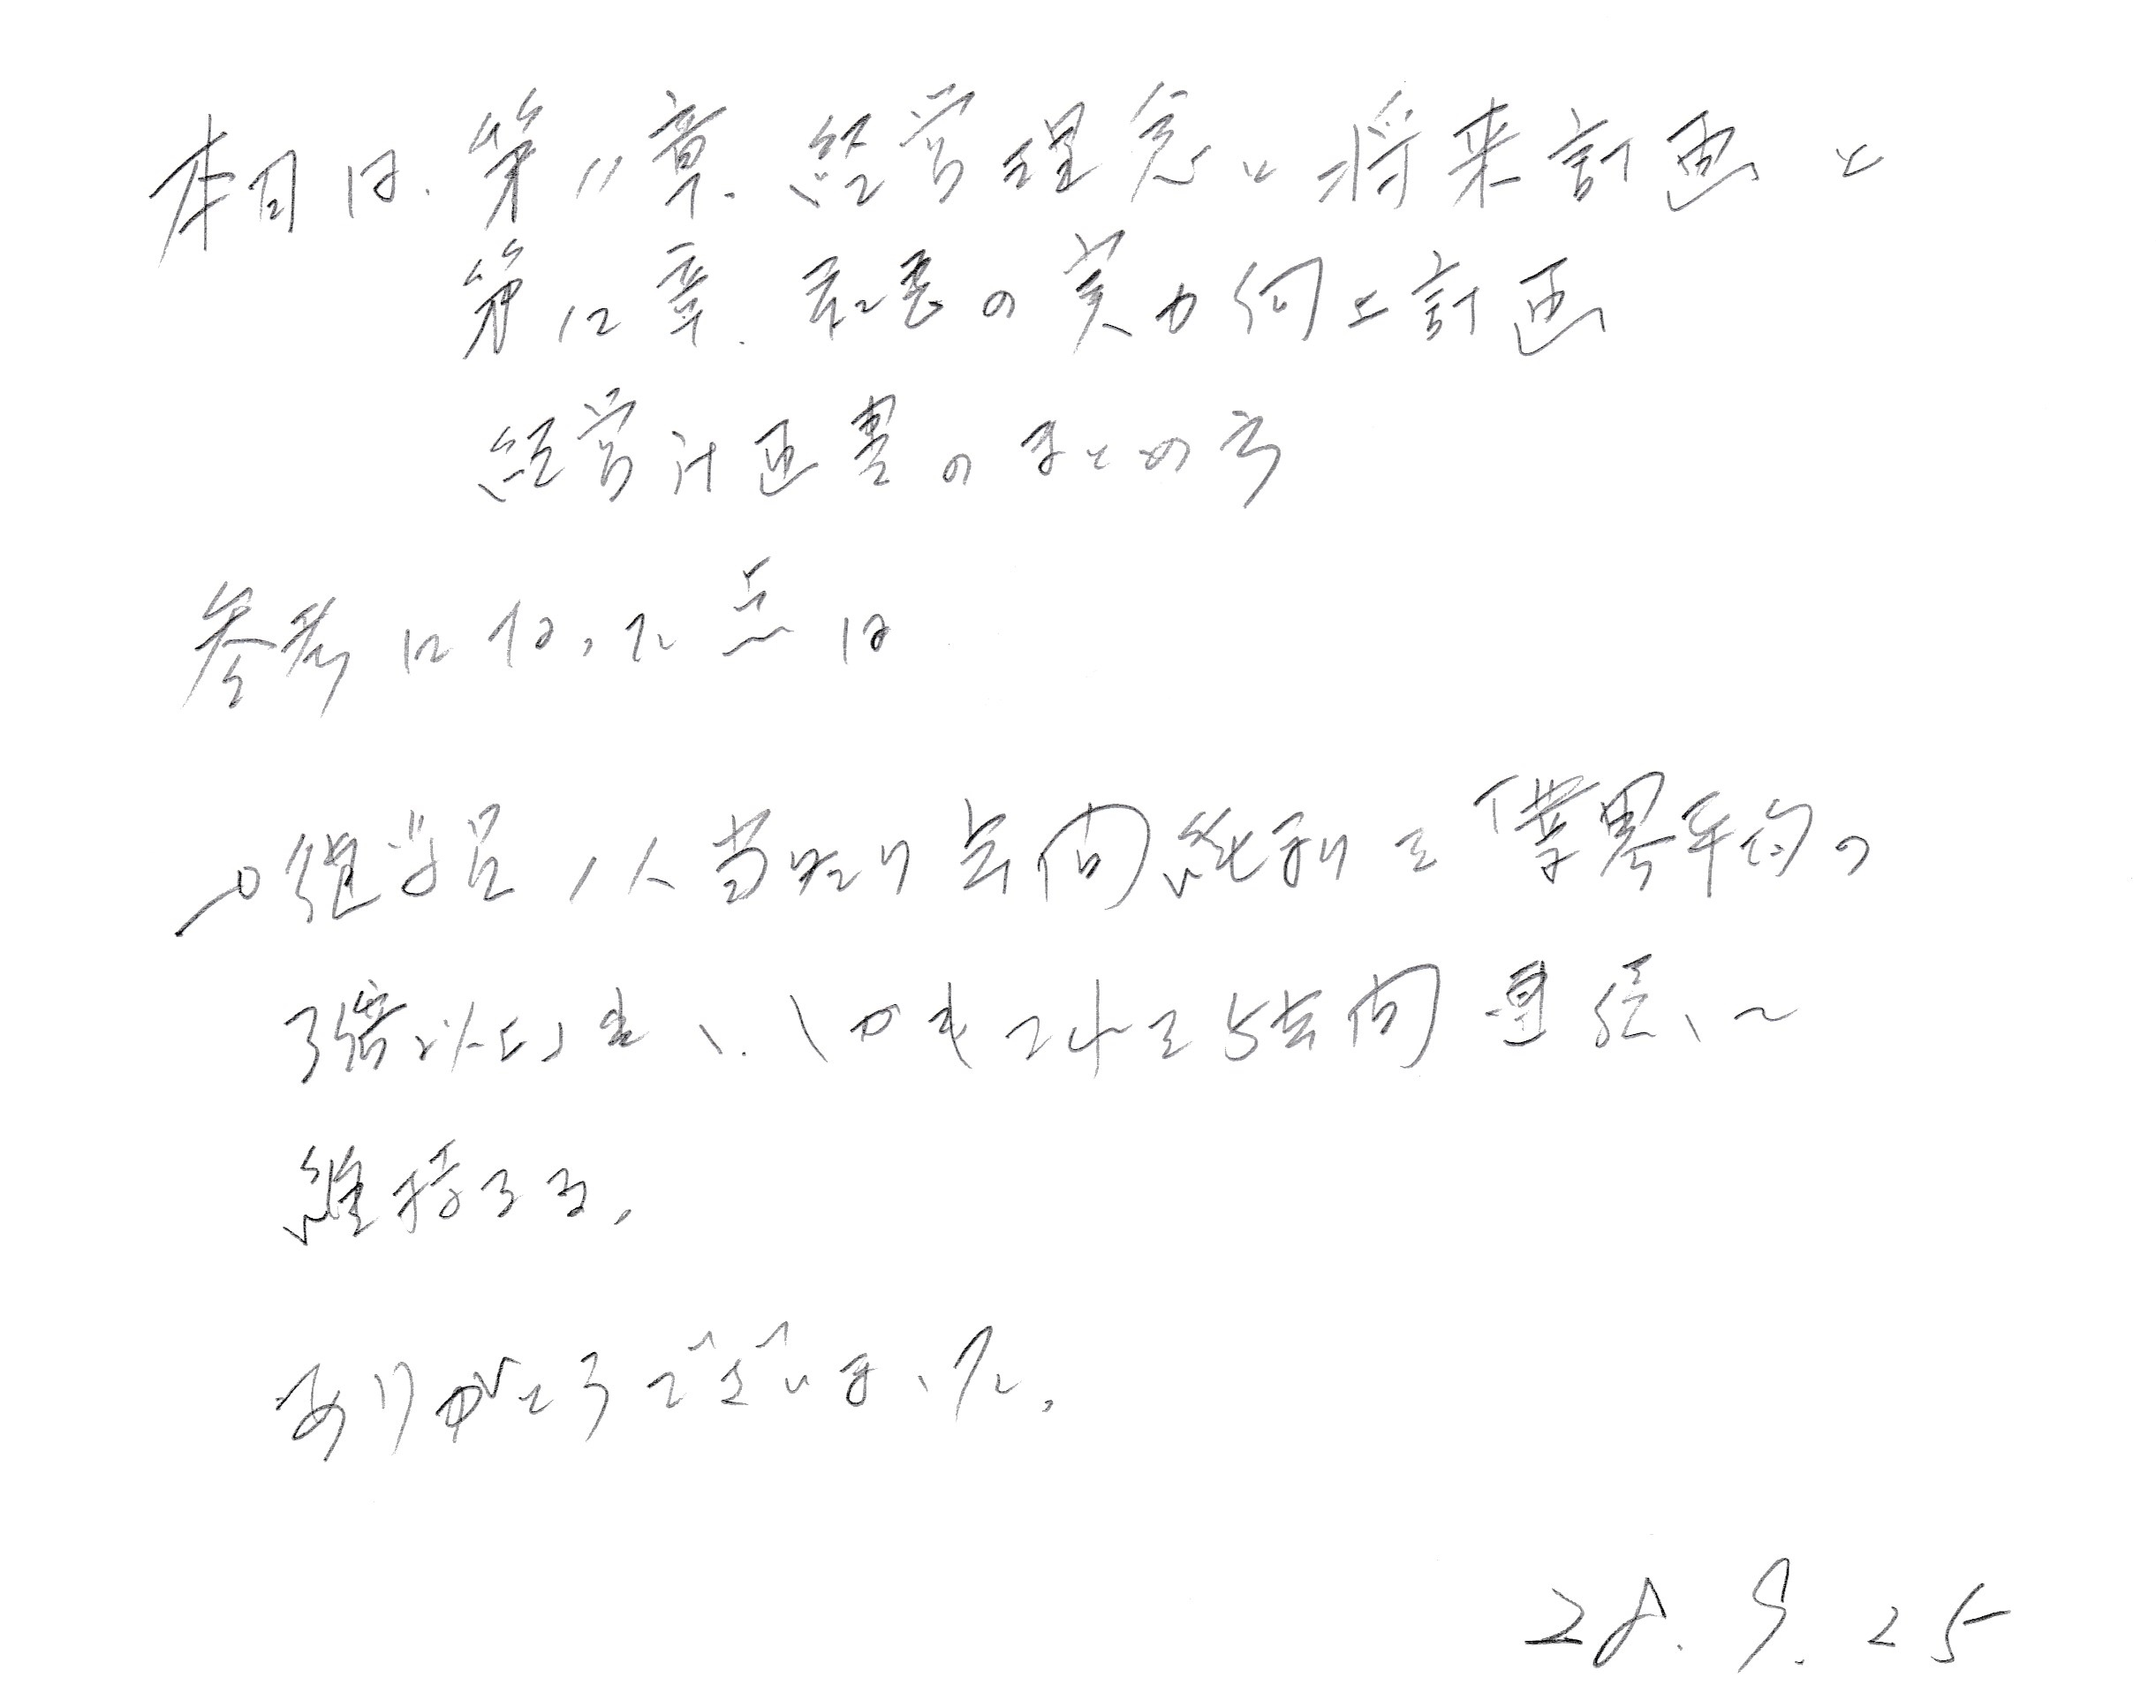 本日は、第11章、経営理念と将来計画と
第12章、社長の実力向上計画
経営計画書のまとめ方
参考になった点は
従業員1人当たり年間純利を「業界平均の
3倍以上」出し、しかもこれを5年間連続して
維持する。
ありがとうございました。
28.9.25